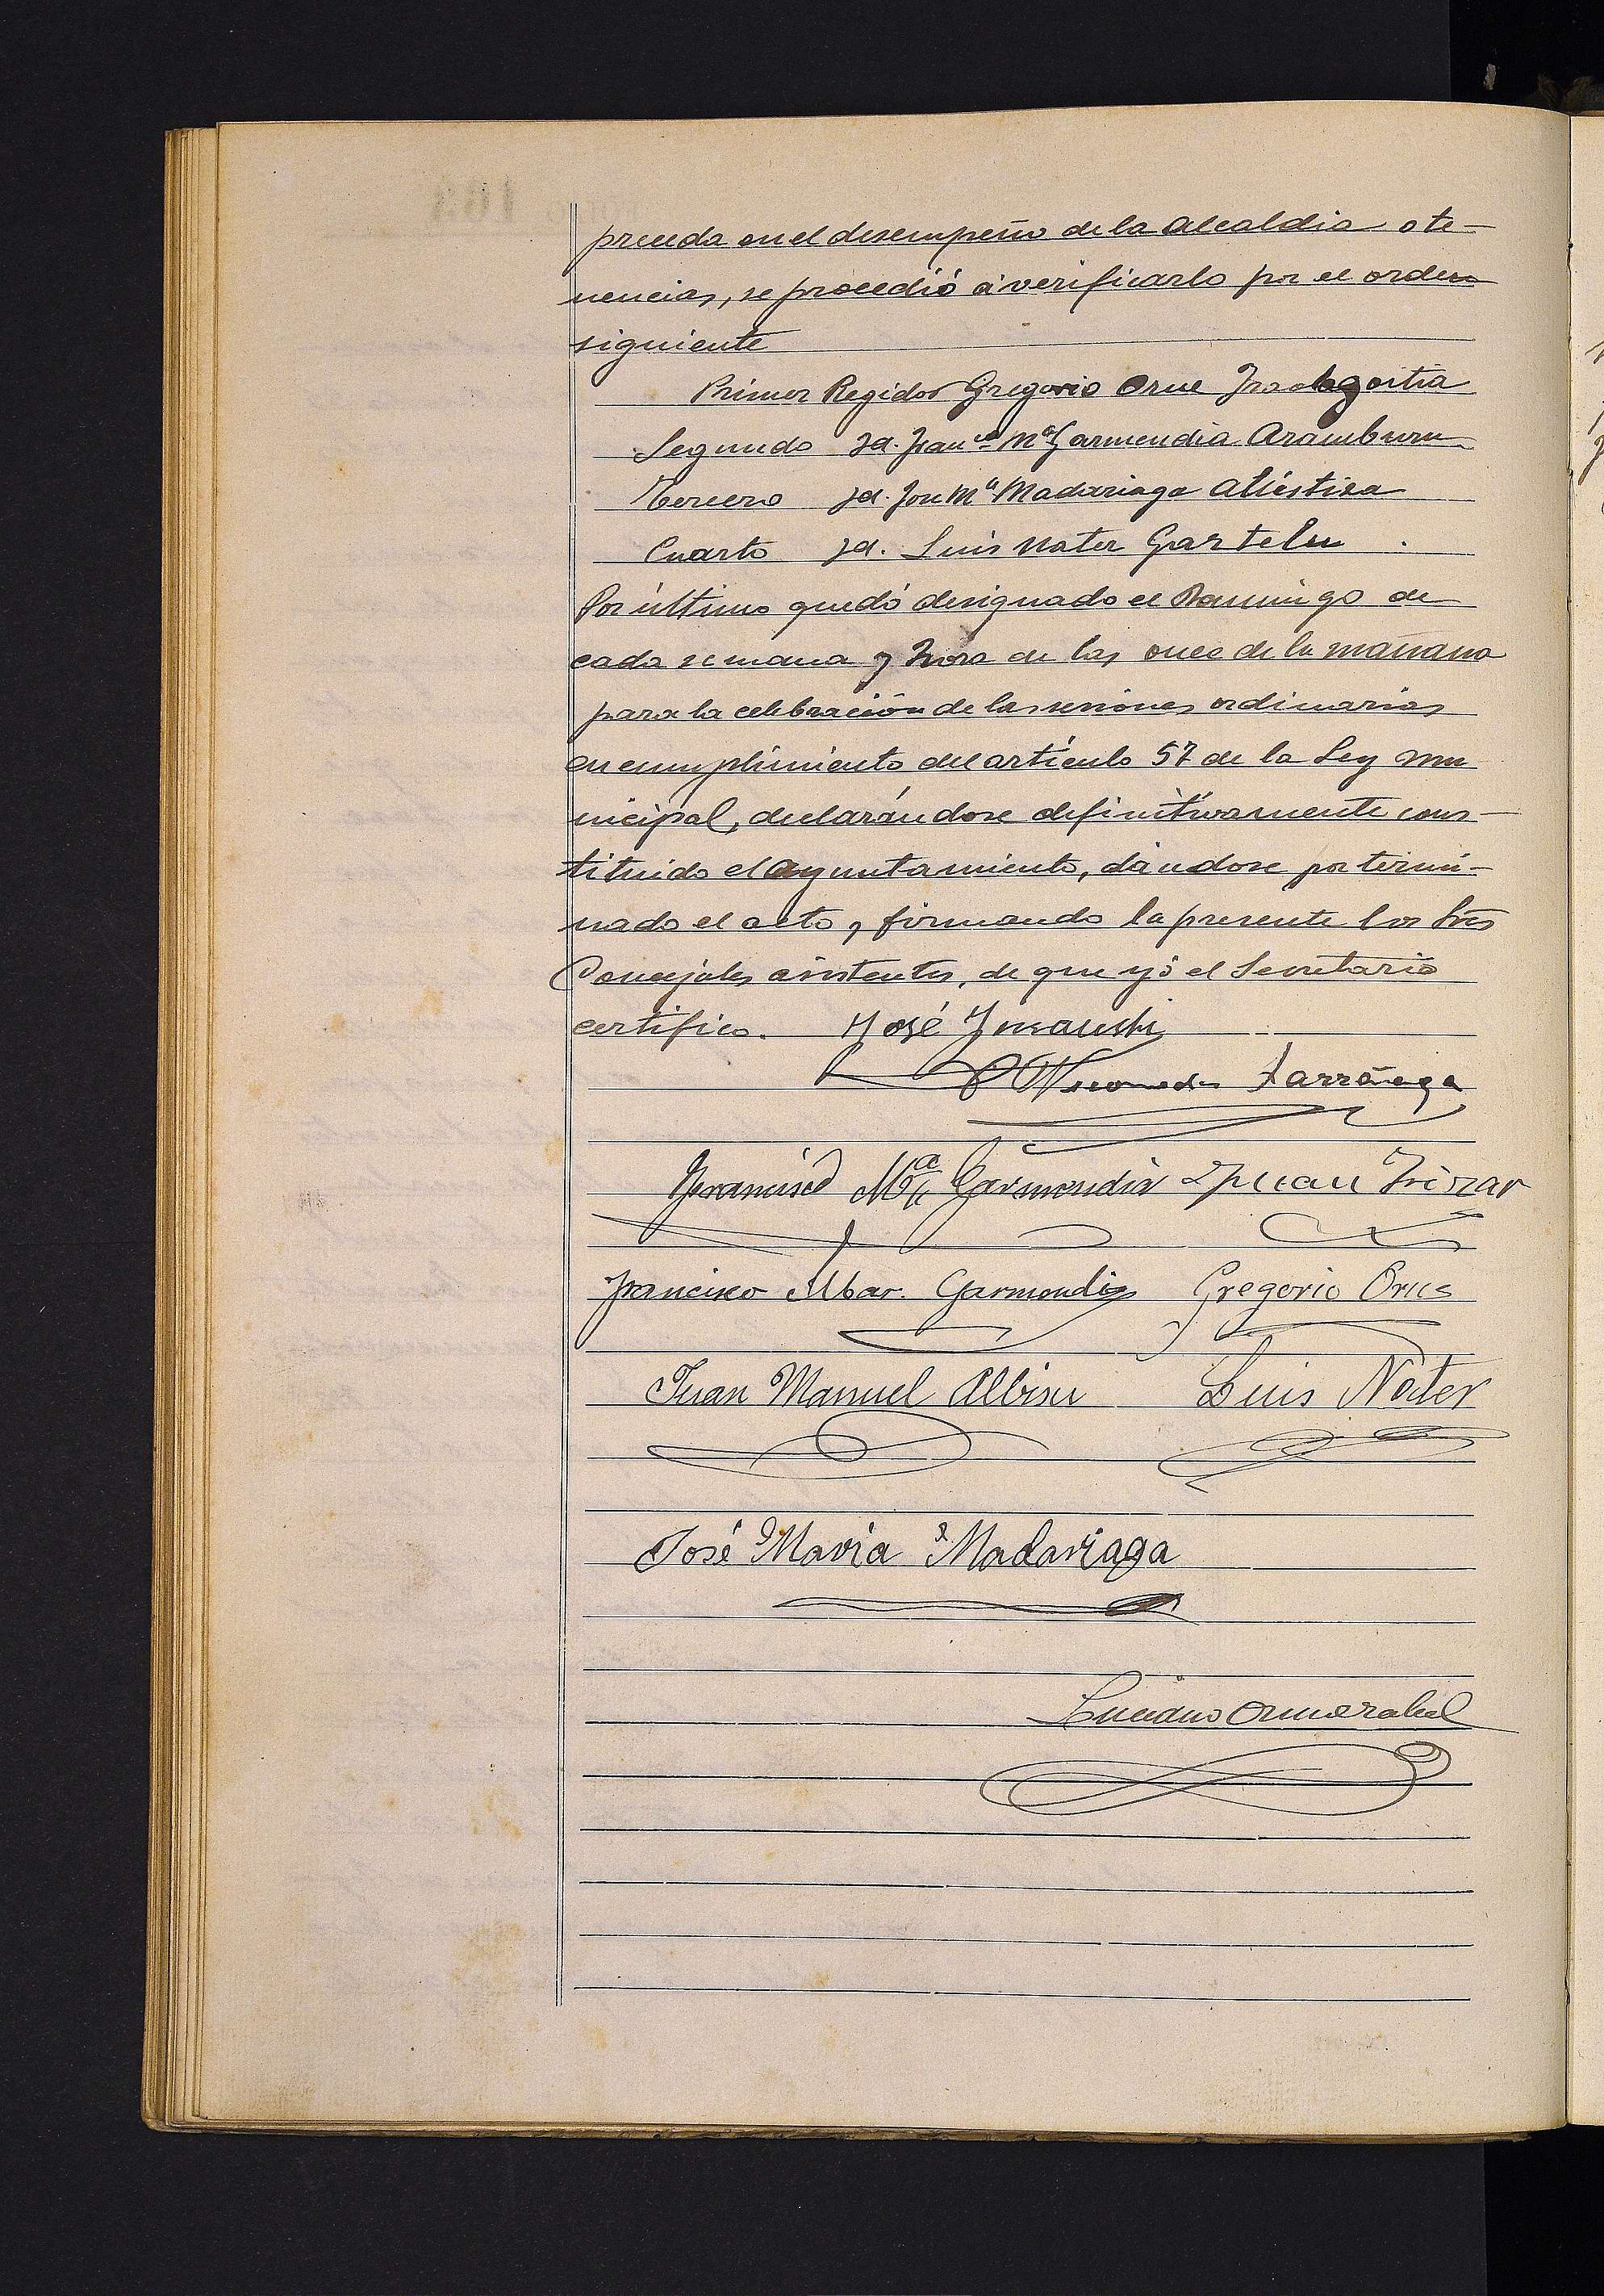 preceda en el desempeño de la Alcaldia o te-
nencias, se procedió á verificarlo por el orden
siguiente
Primer Regidor Gregorio Orue
Segundo Id. Fran.co Mª Garmendia Aramburu
Tercero Id. José Mª Madariaga
Cuarto Id. Luis Nater Gaztelu
Por último quedó designado el Domingo de
cada semana y hora de las once de la mañana
para la celebración de las sesiones ordinarias
en cumplimiento del artículo 57 de la Ley mu
nicipal, declarándose definitivamente cons-
tituido el Ayuntamiento, dándose por termi-
nado el acto, firmando la presente los Sres
Concejales asistentes, de que yó el Secretario
certifico. José Inxausti
Larrañaga
Francisco Mª Garmendia Juan Irizar
Francisco Mar. Garmendia Gregorio Orue
Juan Manuel Albisu Luis Nater
José Maria Madariaga
Luciano Ormazabal